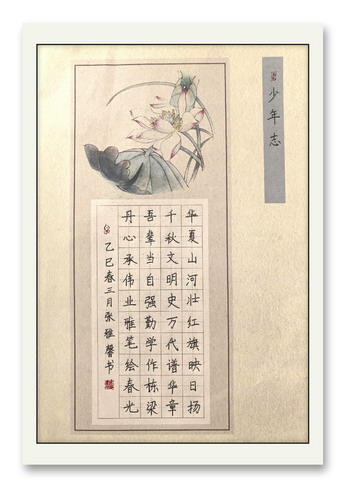 少年志
华夏山河壮红旗映日扬
千秋文明史万代谱华章
吾辈当自强勤学作栋梁
丹心承伟业雅笔绘春光
乙巳春三月张雅馨书